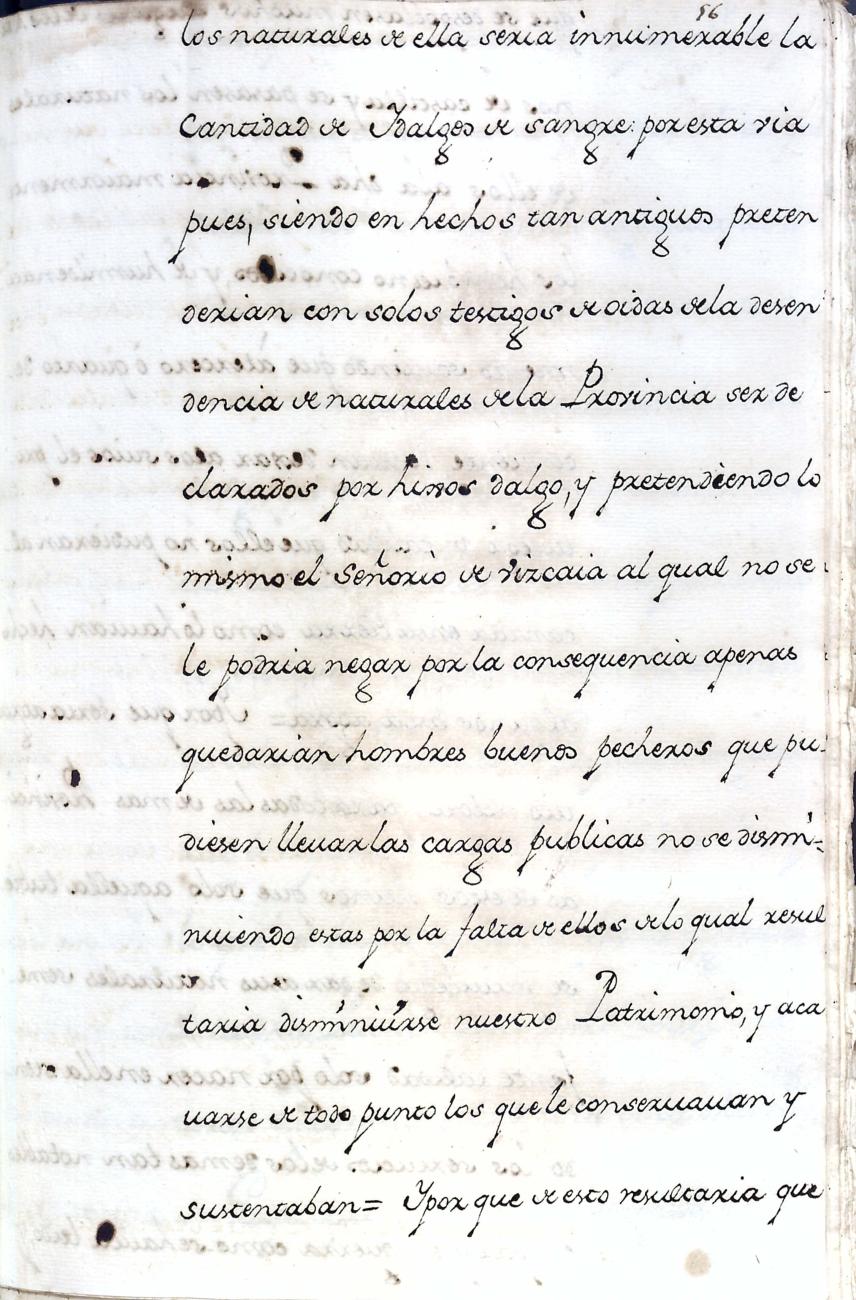 56
los naturales de ella seria innumerable la
Cantidad de Idalgos de sangre: por esta via
pues, siendo en hechos tan antiguos preten
derian con solos testigos de oidas dela desen
dencia de naturales dela Provincia ser de
clarados por hixos dalgo, y pretendiendo lo
mismo el Señorio de vizcaia al qual no se
le podria negar por la consequencia apenas
quedarian hombres buenos pecheros que pu
diesen lleuar las cargas publicas no se dismi-
nuiendo estas por la falta de ellos delo qual resul
taria disminuirse nuestro Patrimonio, y aca
uarse de todo punto los que le conseruauan y
sustentaban= Y por que de esto resultaria que